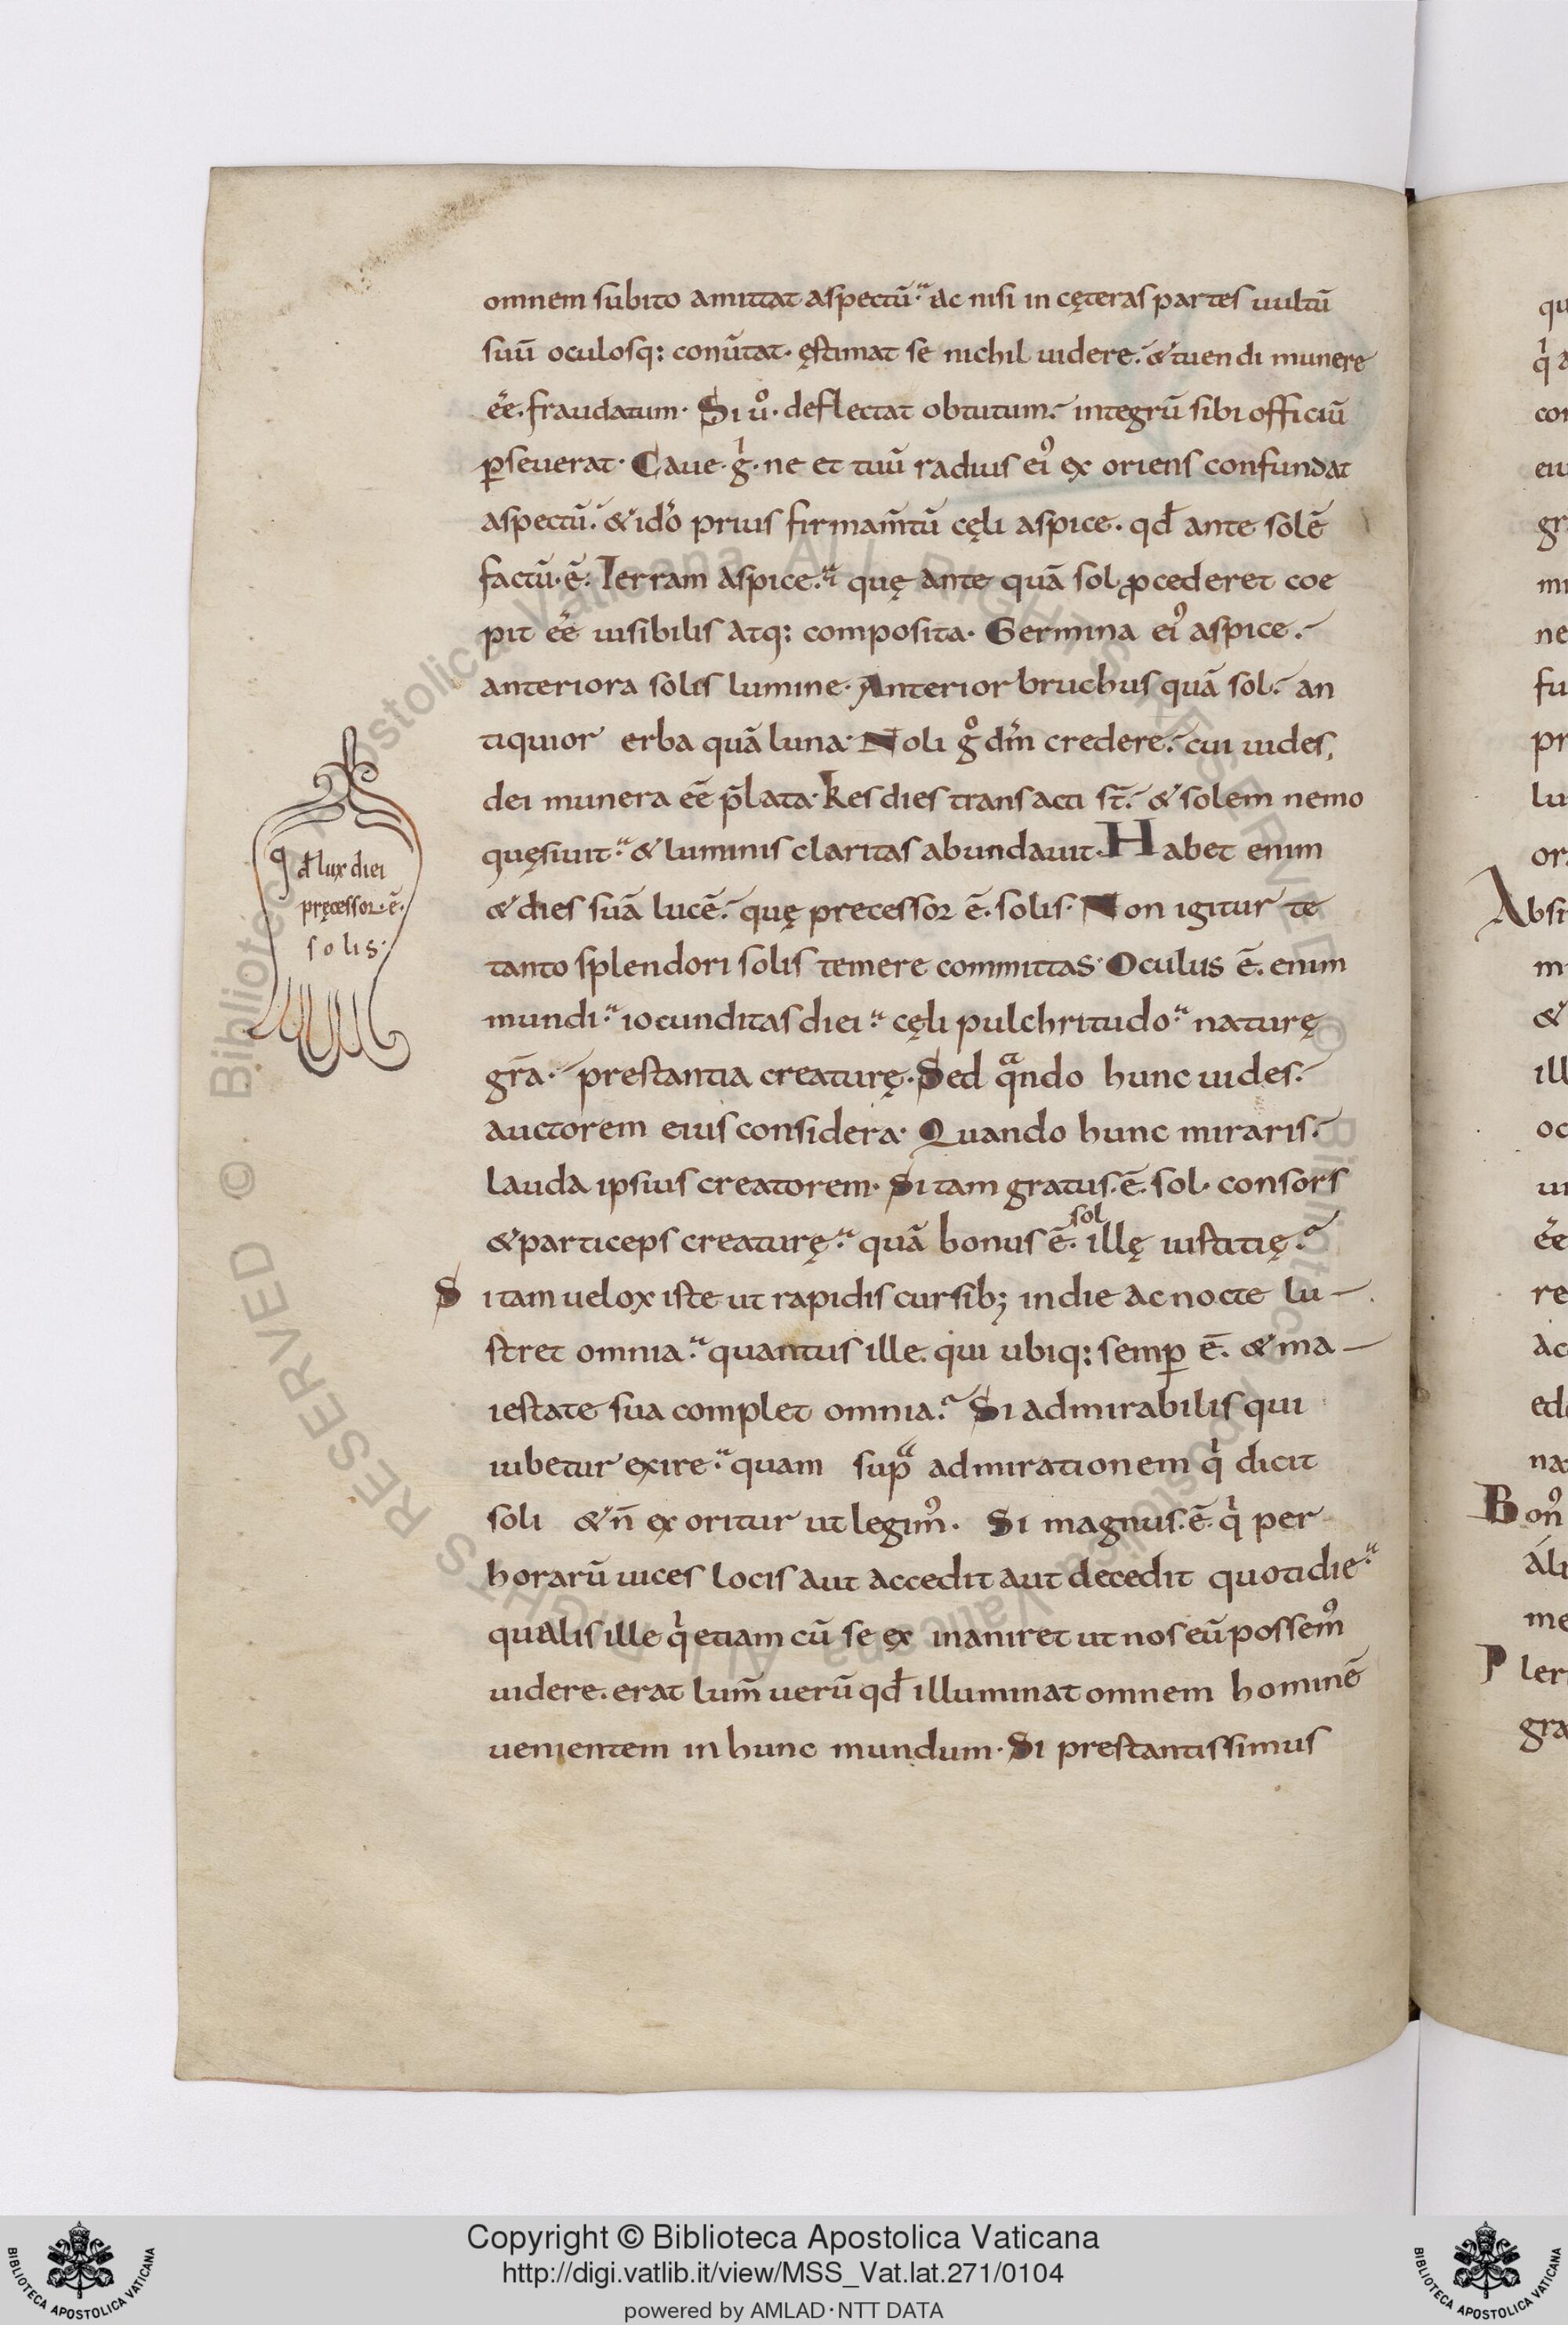 omnem subito amittat aspectū· ac nisi in cęteras partes uultū
suū oculosq: conūtat· ęstimat se nichil uidere· & tuendi munere
ēē· fraudatum· Si uͦ· deflectat obtutum· integrū sibi officiū
ꝑseuerat· Caue· gͥ· ne et tuū radius eiꝰ ex oriens confundat
aspectū· & idōo prius firmam̄tū cęli aspice· qđ ante solē
factū· ē· Terram aspice· quę ante quā sol ꝓcederet coe
pit ēē uisibilis atq: composita· Germina eiꝰ aspice·
anteriora solis lumine· Anterior bruchus quā sol· an
tiquior erba quā luna· Noli gͦ dm̄ credere· cui uides,
dei munera ēē p̄lata· Tres dies transacti st̄· & solem nemo
quęsiuit· & luminis claritas abundauit· Habet enim
& dies suā lucē· quę precessor ē· solis· Non igitur te
tanto splendori solis temere committas· Oculus ē· enim
mundi· iocunditas diei· cęli pulchritudo· naturę
gr̄a· prestantia creaturę· Sed qͣndo hunc uides·
auctorem eius considera· Quando hunc miraris·
lauda ipsius creatorem· Si tam gratus· ē· sol· consors
& particeps creaturę· quā bonus ē· sol illę iustitię·
Si tam uelox iste ut rapidis cursib; in die ac nocte lu—
stret omnia· quantus ille· qui ubiq: semꝑ ē· & ma—
iestate sua complet omnia· Si admirabilis qui
iubetur exire· quam supͣ admirationem qͥ dicit
soli & n̄ ex oritur ut legimꝰ· Si magnus· ē· qͥ per
horarū uices locis aut accedit aut decedit quotidie·
qualis ille qͥ etiam cū se ex inaniret ut nos eū possemꝰ
uidere· erat lum̄ uerū qđ illuminat omnem hominē
uenientem in hunc mundum· Si prestantissimus
Qđ lux diei
pręcessor· ē·
solis·
qu
qͥ a
con
eiu
gr
mi
ne
fu
pr
lu
or
Absi
m
&
ill
oc
ui
ēē
re
ac
ed
na
Bonꝰ
ali
me
Pler
gra
Biblioteca Apostolica Vaticana ALL RIGHTS RESERVED ©
Biblioteca Apostolica Vaticana ALL RIGHTS RESERVED ©
BIBLIOTECA APOSTOLICA VATICANA
Copyright © Biblioteca Apostolica Vaticana
http://digi.vatlib.it/view/MSS_Vat.lat.271/0104
powered by AMLAD·NTT DATA
BIBLIOTECA APOSTOLICA VATICANA